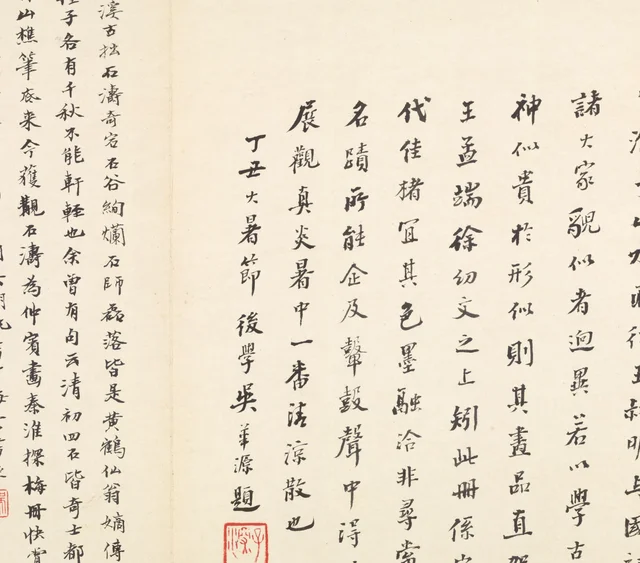 王叔明與國
諸大家貌似者迥異若以學古
神似貴於形似則其畫品直駕
王孟端徐幼文之上矧此冊係
代佳楮宜其色墨融洽非尋常
名蹟所能企及鼙鼓聲中得
展觀真炎暑中一番清涼散也
丁丑大暑節後學吳華源題
溪古拙石濤奇宕石谷絢爛石師磊落皆是黃鶴仙翁嫡傳
子各有千秋不能軒輊也余曾有句云清初四石皆奇士都
山樵筆底來今獲觀石濤為仲賓畫秦淮探梅冊快賞